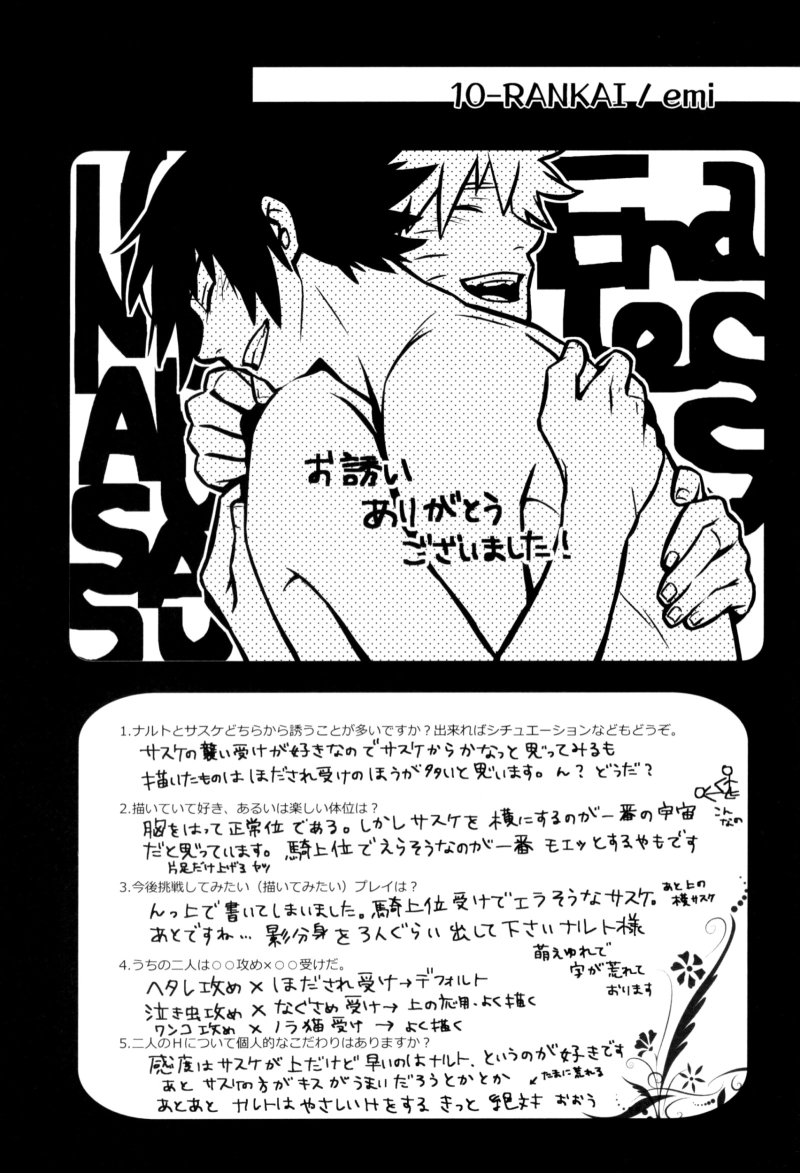 10-RANKAI / emi
NARUSASU
お誘い
ありがとう
ございました!
1.ナルトとサスケどちらから誘うことが多いですか?出来ればシチュエーションなどもどうぞ。
サスケの襲い受けが好きなのでサスケからかなっと思ってみるも
描いたものは ほだされ受けのほうが多いと思います。ん? どうだ?
2.描いていて好き、あるいは楽しい体位は?
胸をはって正常位である。しかしサスケを横にするのが一番の宇宙
だと思っています。騎上位でえらそうなのが一番モエッとするやもです
片足だけ上げるヤツ
こんなの
3.今後挑戦してみたい(描いてみたい)プレイは?
んっ上で書いてしまいました。騎上位受けでエラそうなサスケ。
あと上の
横サスケ
あとですね… 影分身を3人ぐらい出して下さいナルト様
萌えゆれで
字が荒れて
おります
4.うちの二人は○○攻め×○○受けだ。
ヘタレ攻め × ほだされ受け→デフォルト
泣き虫攻め × なぐさめ受け→ 上の応用・よく描く
ワンコ攻め × ノラ猫受け → よく描く
5.二人のHについて個人的なこだわりはありますか?
感度はサスケが上だけど早いのはナルト、というのが好きです
あと サスケの方がキスがうまいだろうとかとか
たまに荒れる
あとあと ナルトはやさしいHをする きっと 絶対 おおう